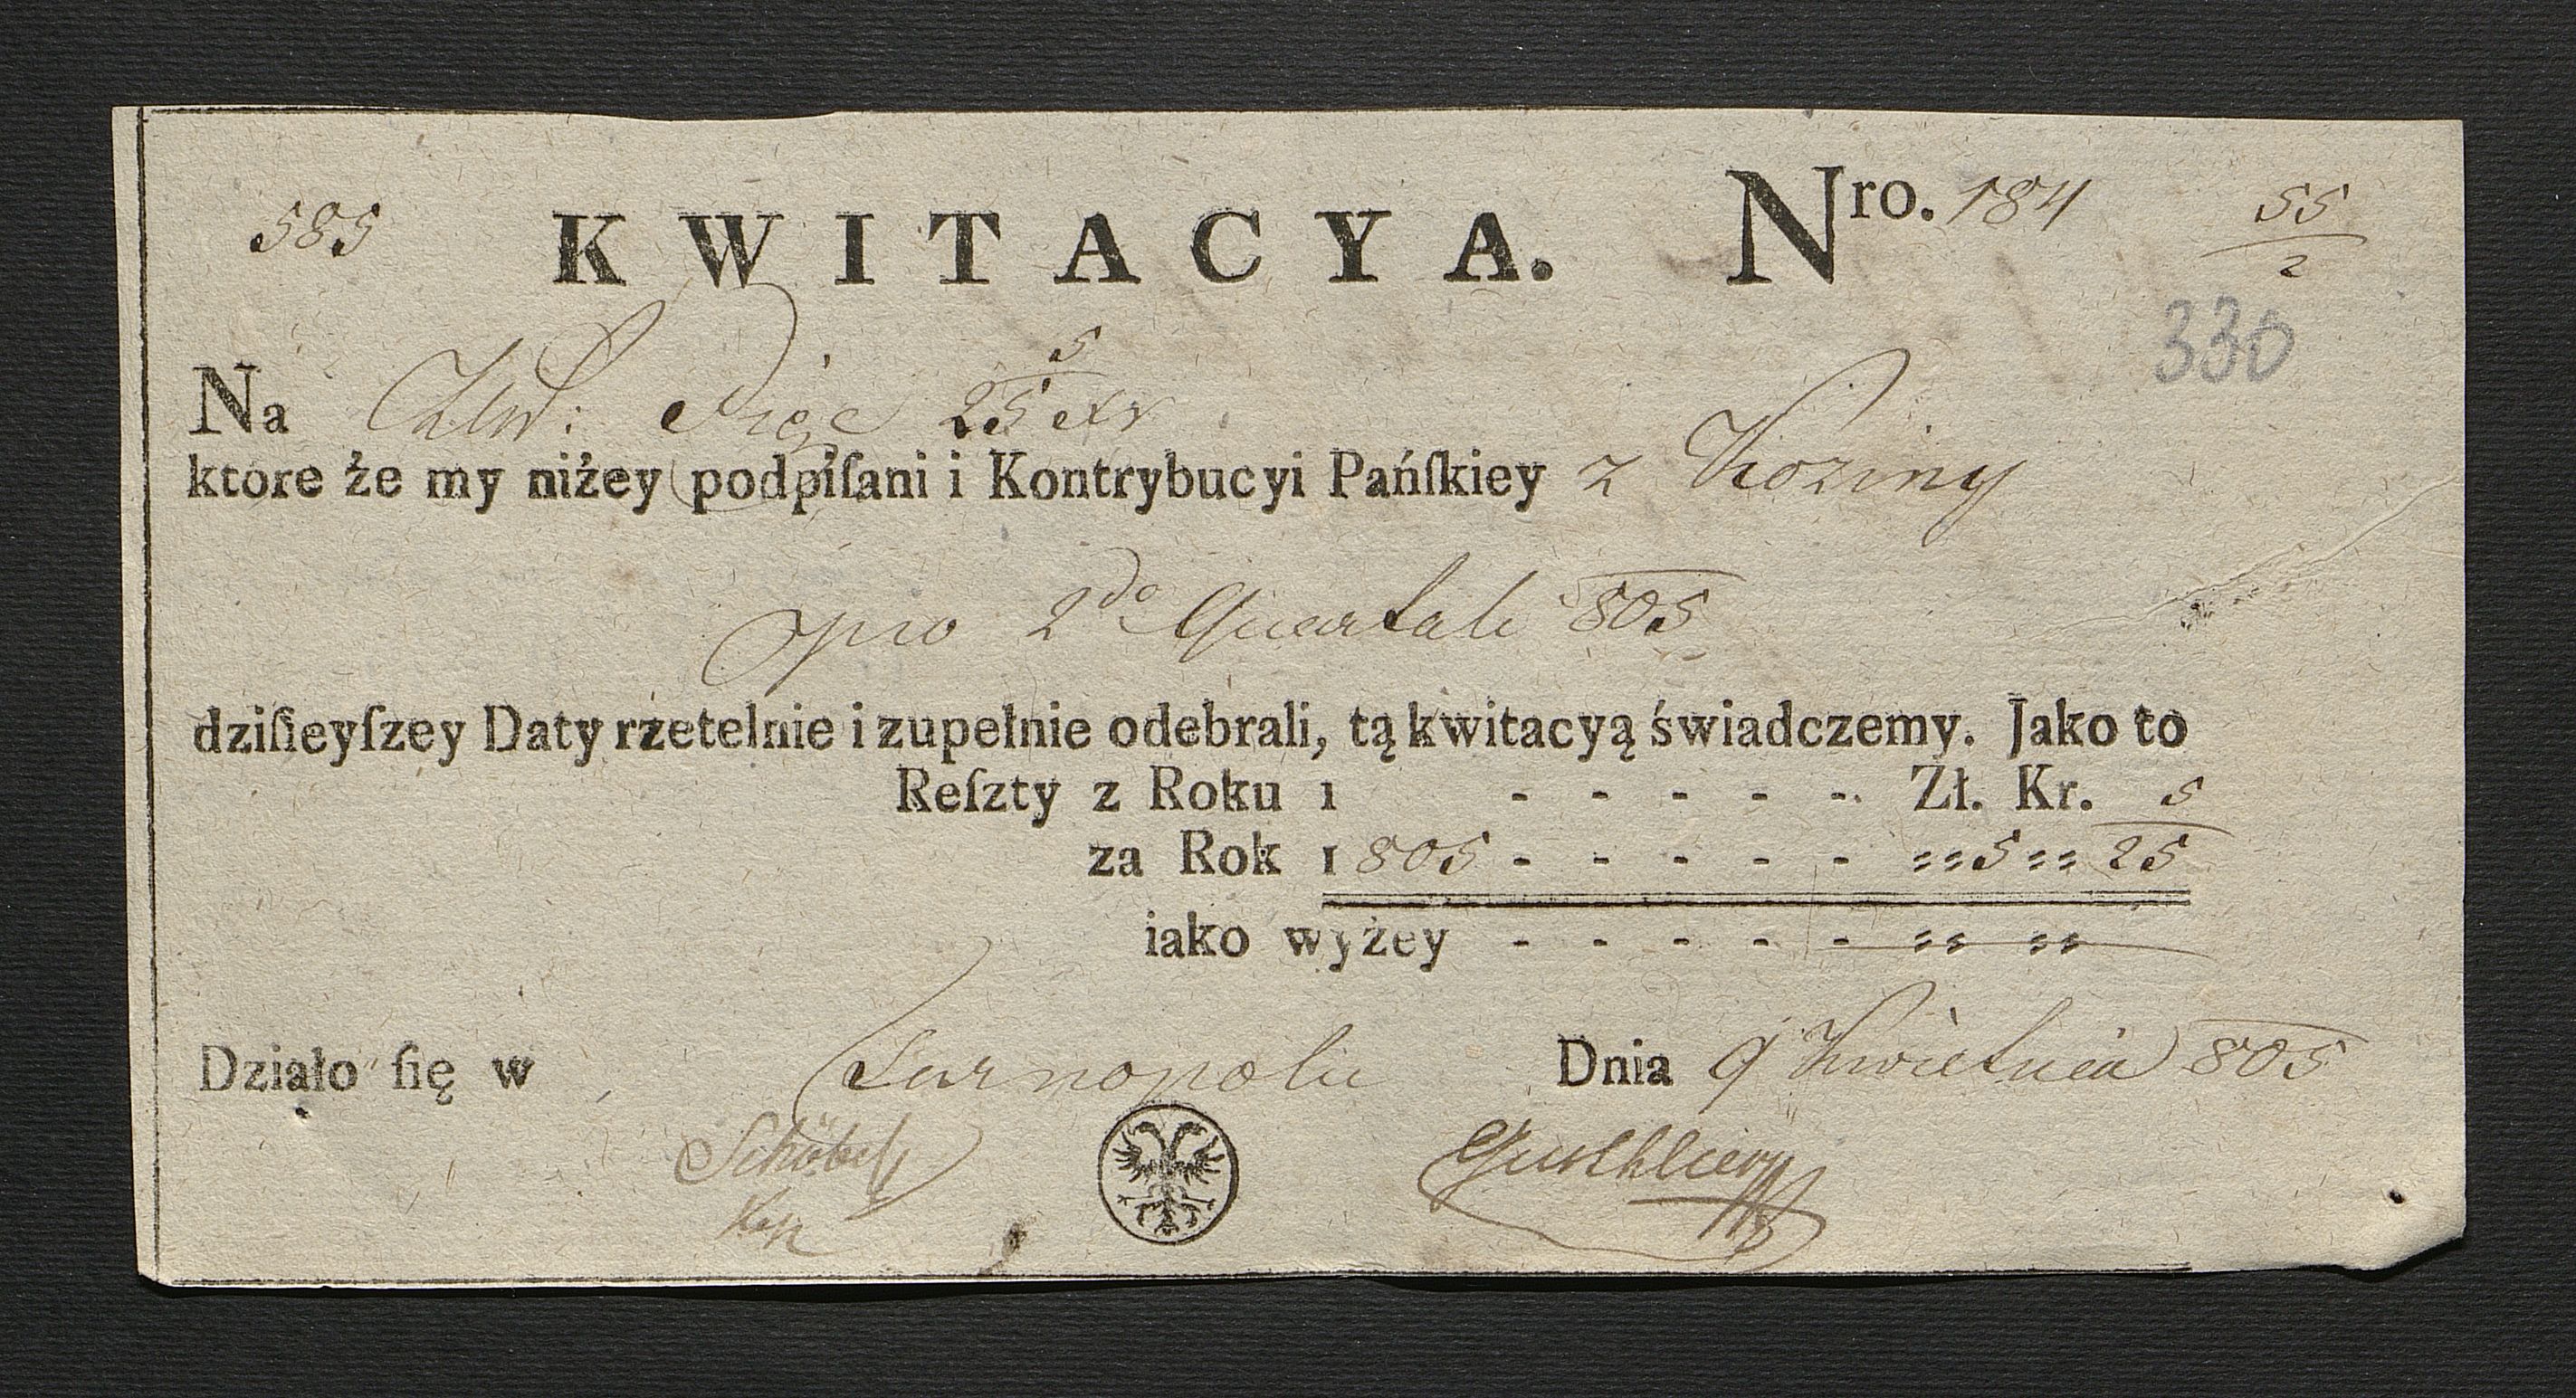 585 KWITACYA. Nro. 184 55/2
330
Na Zło: Pięć 25 5 xr
ktore że my niżey podpiſani i Kontrybucyi Pańſkiey z Koziny
pro 2do Quartali 805
dziſieyſzey Daty rzetelnie i zupełnie odebrali, tą kwitacyą świadczemy. Jako to
Reſzty z Roku 1 - - - - - Zł. Kr. 5
za Rok 1805 - - - - - 5 25
iako wyżey - - - - -
Działo ſię w Tarnopolu Dnia 9 Kwietnia 805
Schöbel